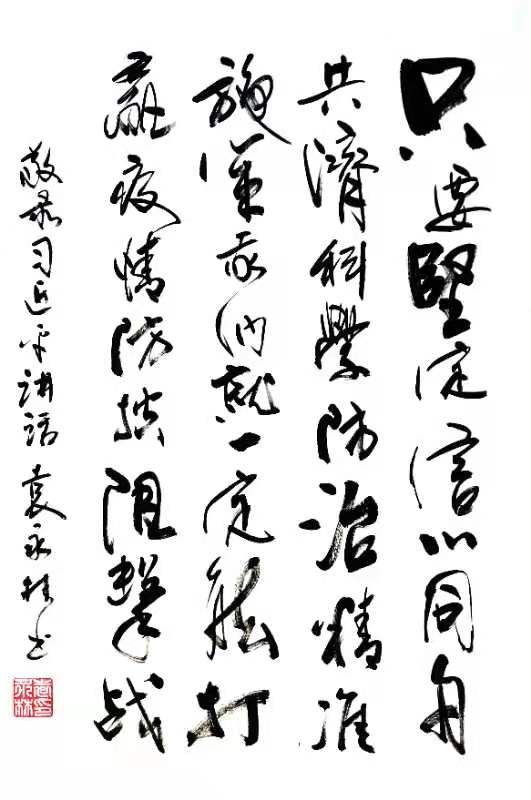 只要堅定信心同舟
共濟科學防治精准
施策我们就一定能打
赢疫情防控阻擊战
敬录习近平讲话 袁永林书
袁印永林